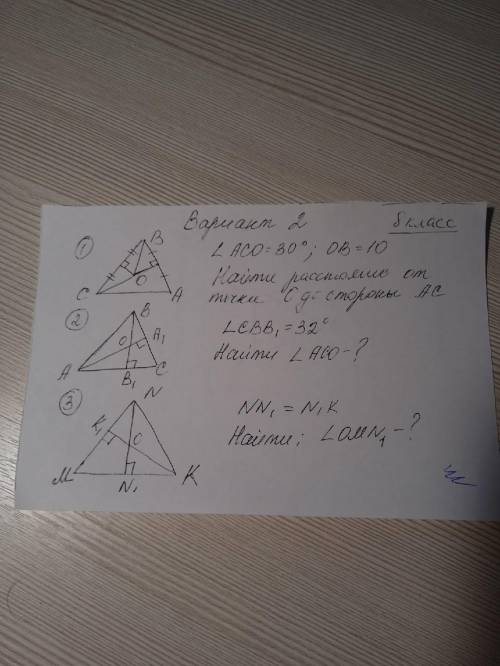 Вариант 2
8 класс
1
B
O
C
A
∠ACO=30°; OB=10
Найти расстояние от
точки O до стороны AC
2
B
O
A1
A
B1
C
∠CBB1=32°
Найти ∠ACO-?
3
N
K1
O
M
N1
K
NN1=N1K
Найти; ∠OMN1-?